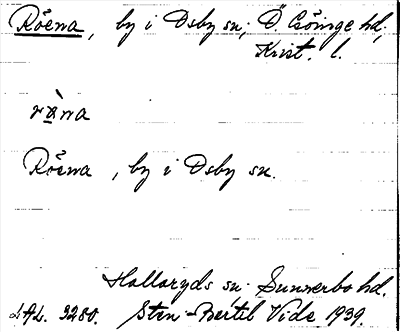 Röena, by i Osby sn; Ö. Göinge hd;
Krist. l.
ræ̀na
Röena, by i Osby sn.
Hallaryds sn. Sunnerbo hd.
LAL. 3280. Sten-Bertil Vide 1939.